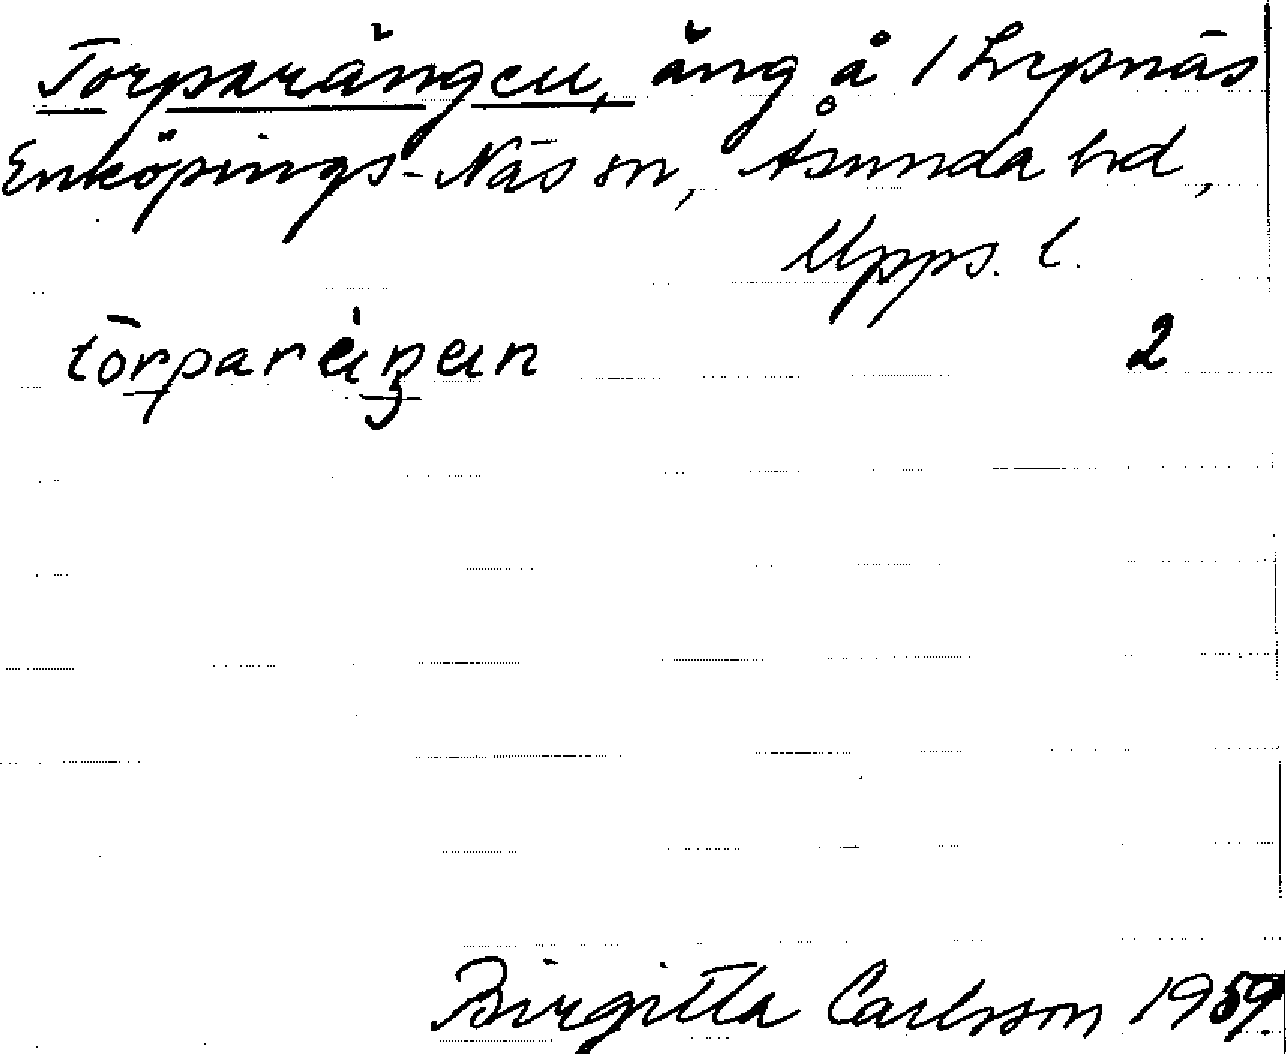 Torparängen, äng å 1 Lrepnäs
Enköpings-Näs sn, Åsunda hd,
Upps. l.
törparäŋen 2
Birgitta Carlsson 1959